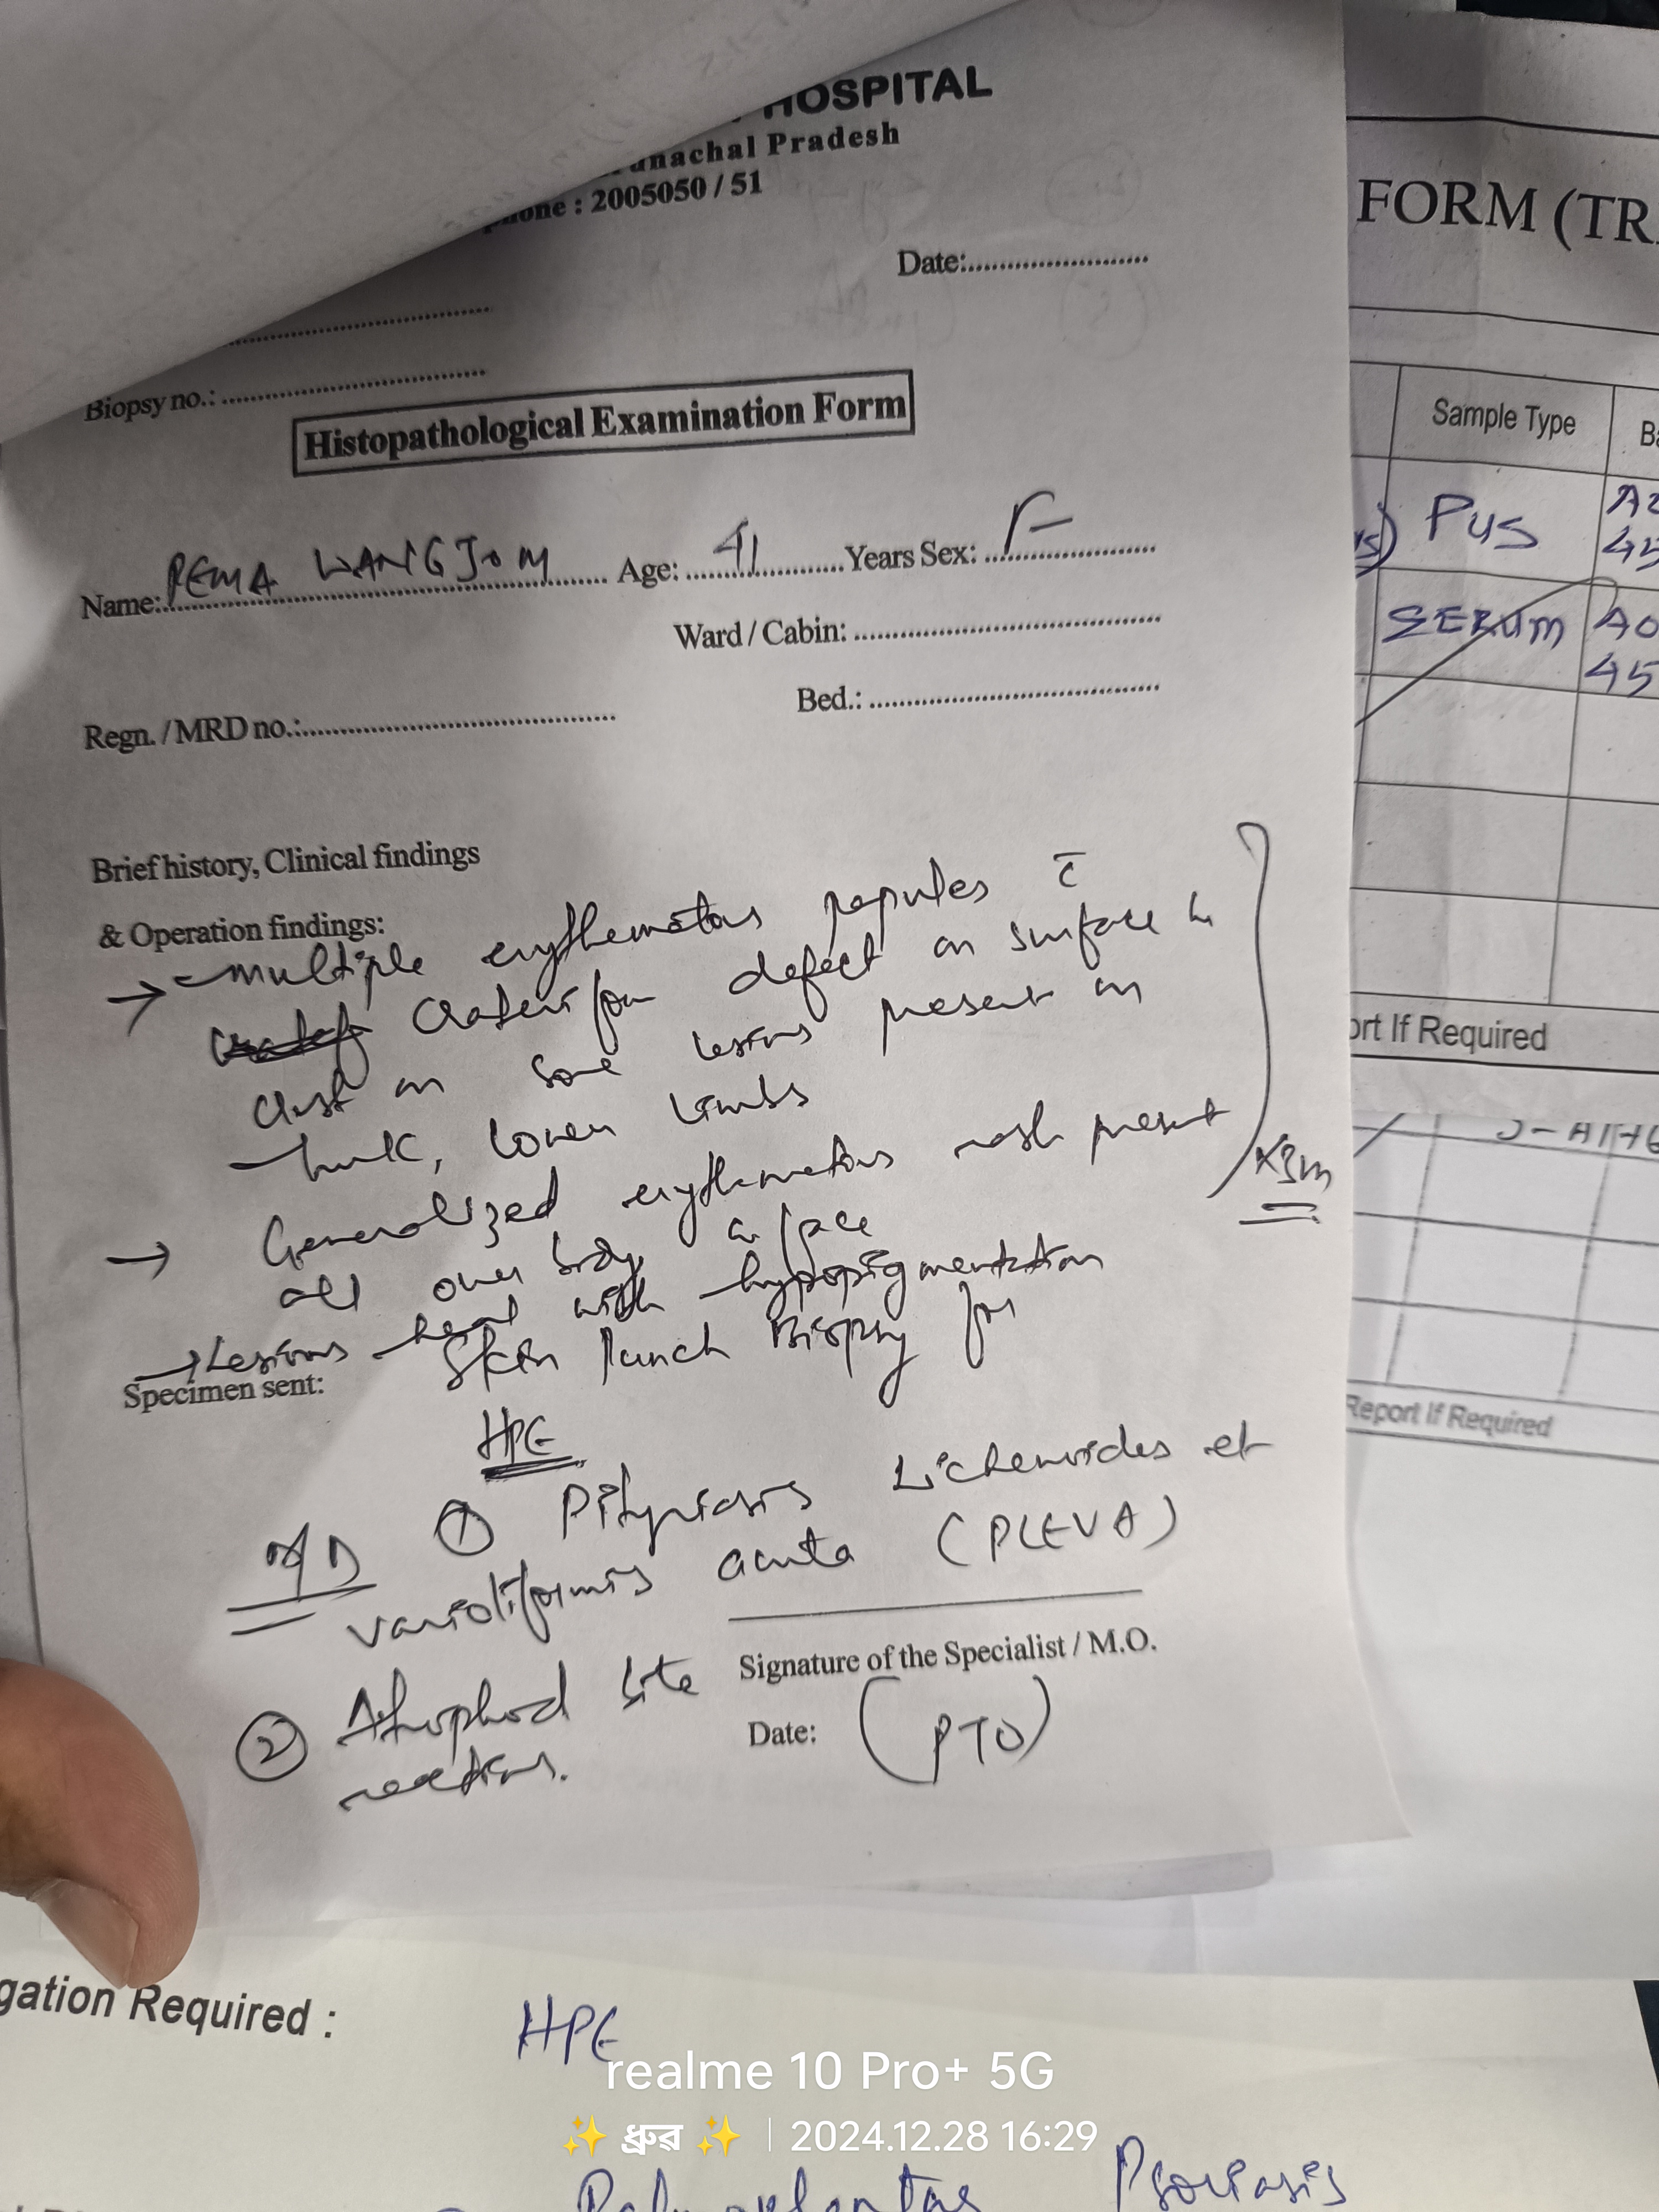 HOSPITAL
Pradesh
: 2005050 / 51
Date:
Biopsy no.:
Histopathological Examination Form
Name: PEMA WANGJOM Age: 41 Years Sex: F
Ward / Cabin:
Bed.:
Regn. / MRD no.:
Brief history, Clinical findings
& Operation findings:
→ - Multiple erythematous papules c̄
Crateriform defect on surface &
crust on some lesions present on
trunk, lower limbs
→ Generalized erythematous rash present
all over body & face
x3m
→ Lesions heal with hypopigmentation
Specimen sent: Skin Punch Biopsy for
HPE
① Pityriasis Lichenoides et
varioliformis acuta (PLEVA)
Signature of the Specialist / M.O.
② Athrophod bite
reactions.
Date:
(PTO)
FORM (TR
Sample Type
Pus
SERUM
45
ort If Required
Report If Required
gation Required :
HPE
Psoriasis
realme 10 Pro+ 5G
✨ ধ্ৰুৱ ✨ | 2024.12.28 16:29